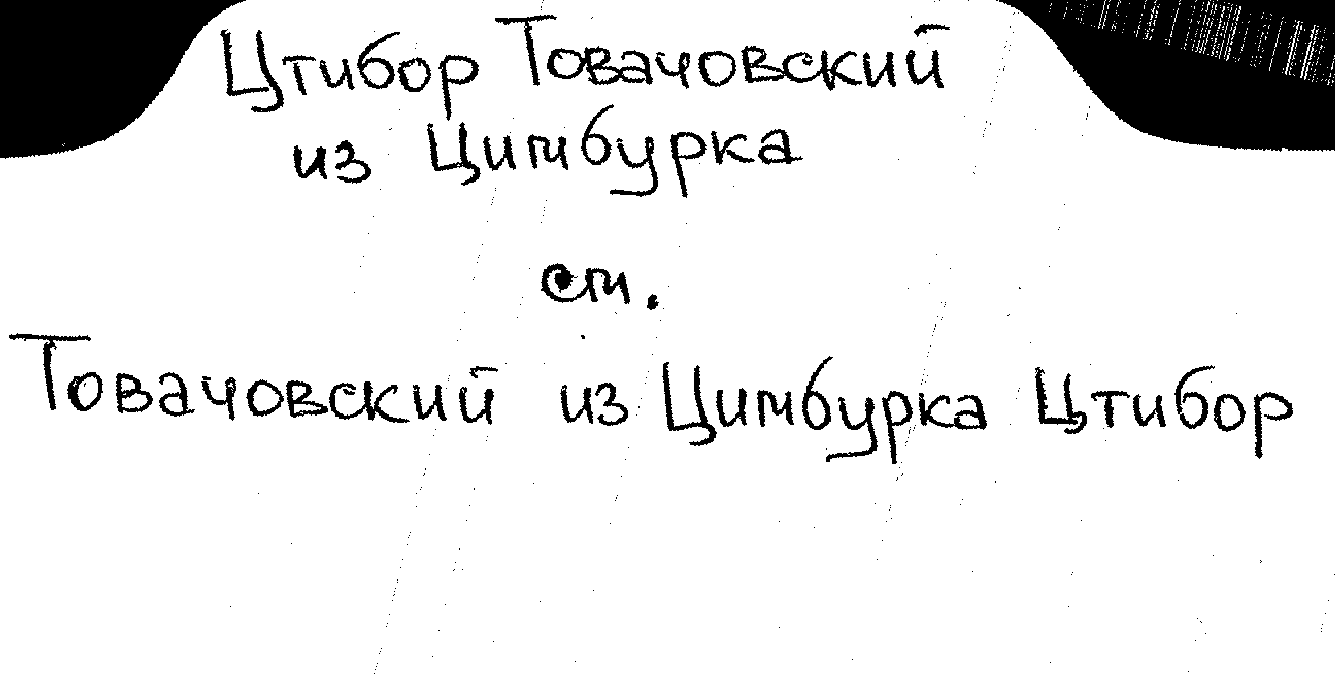 Цтибор Товачовский
из Цимбурка
см.
Товачовский из Цимбурка Цтибор